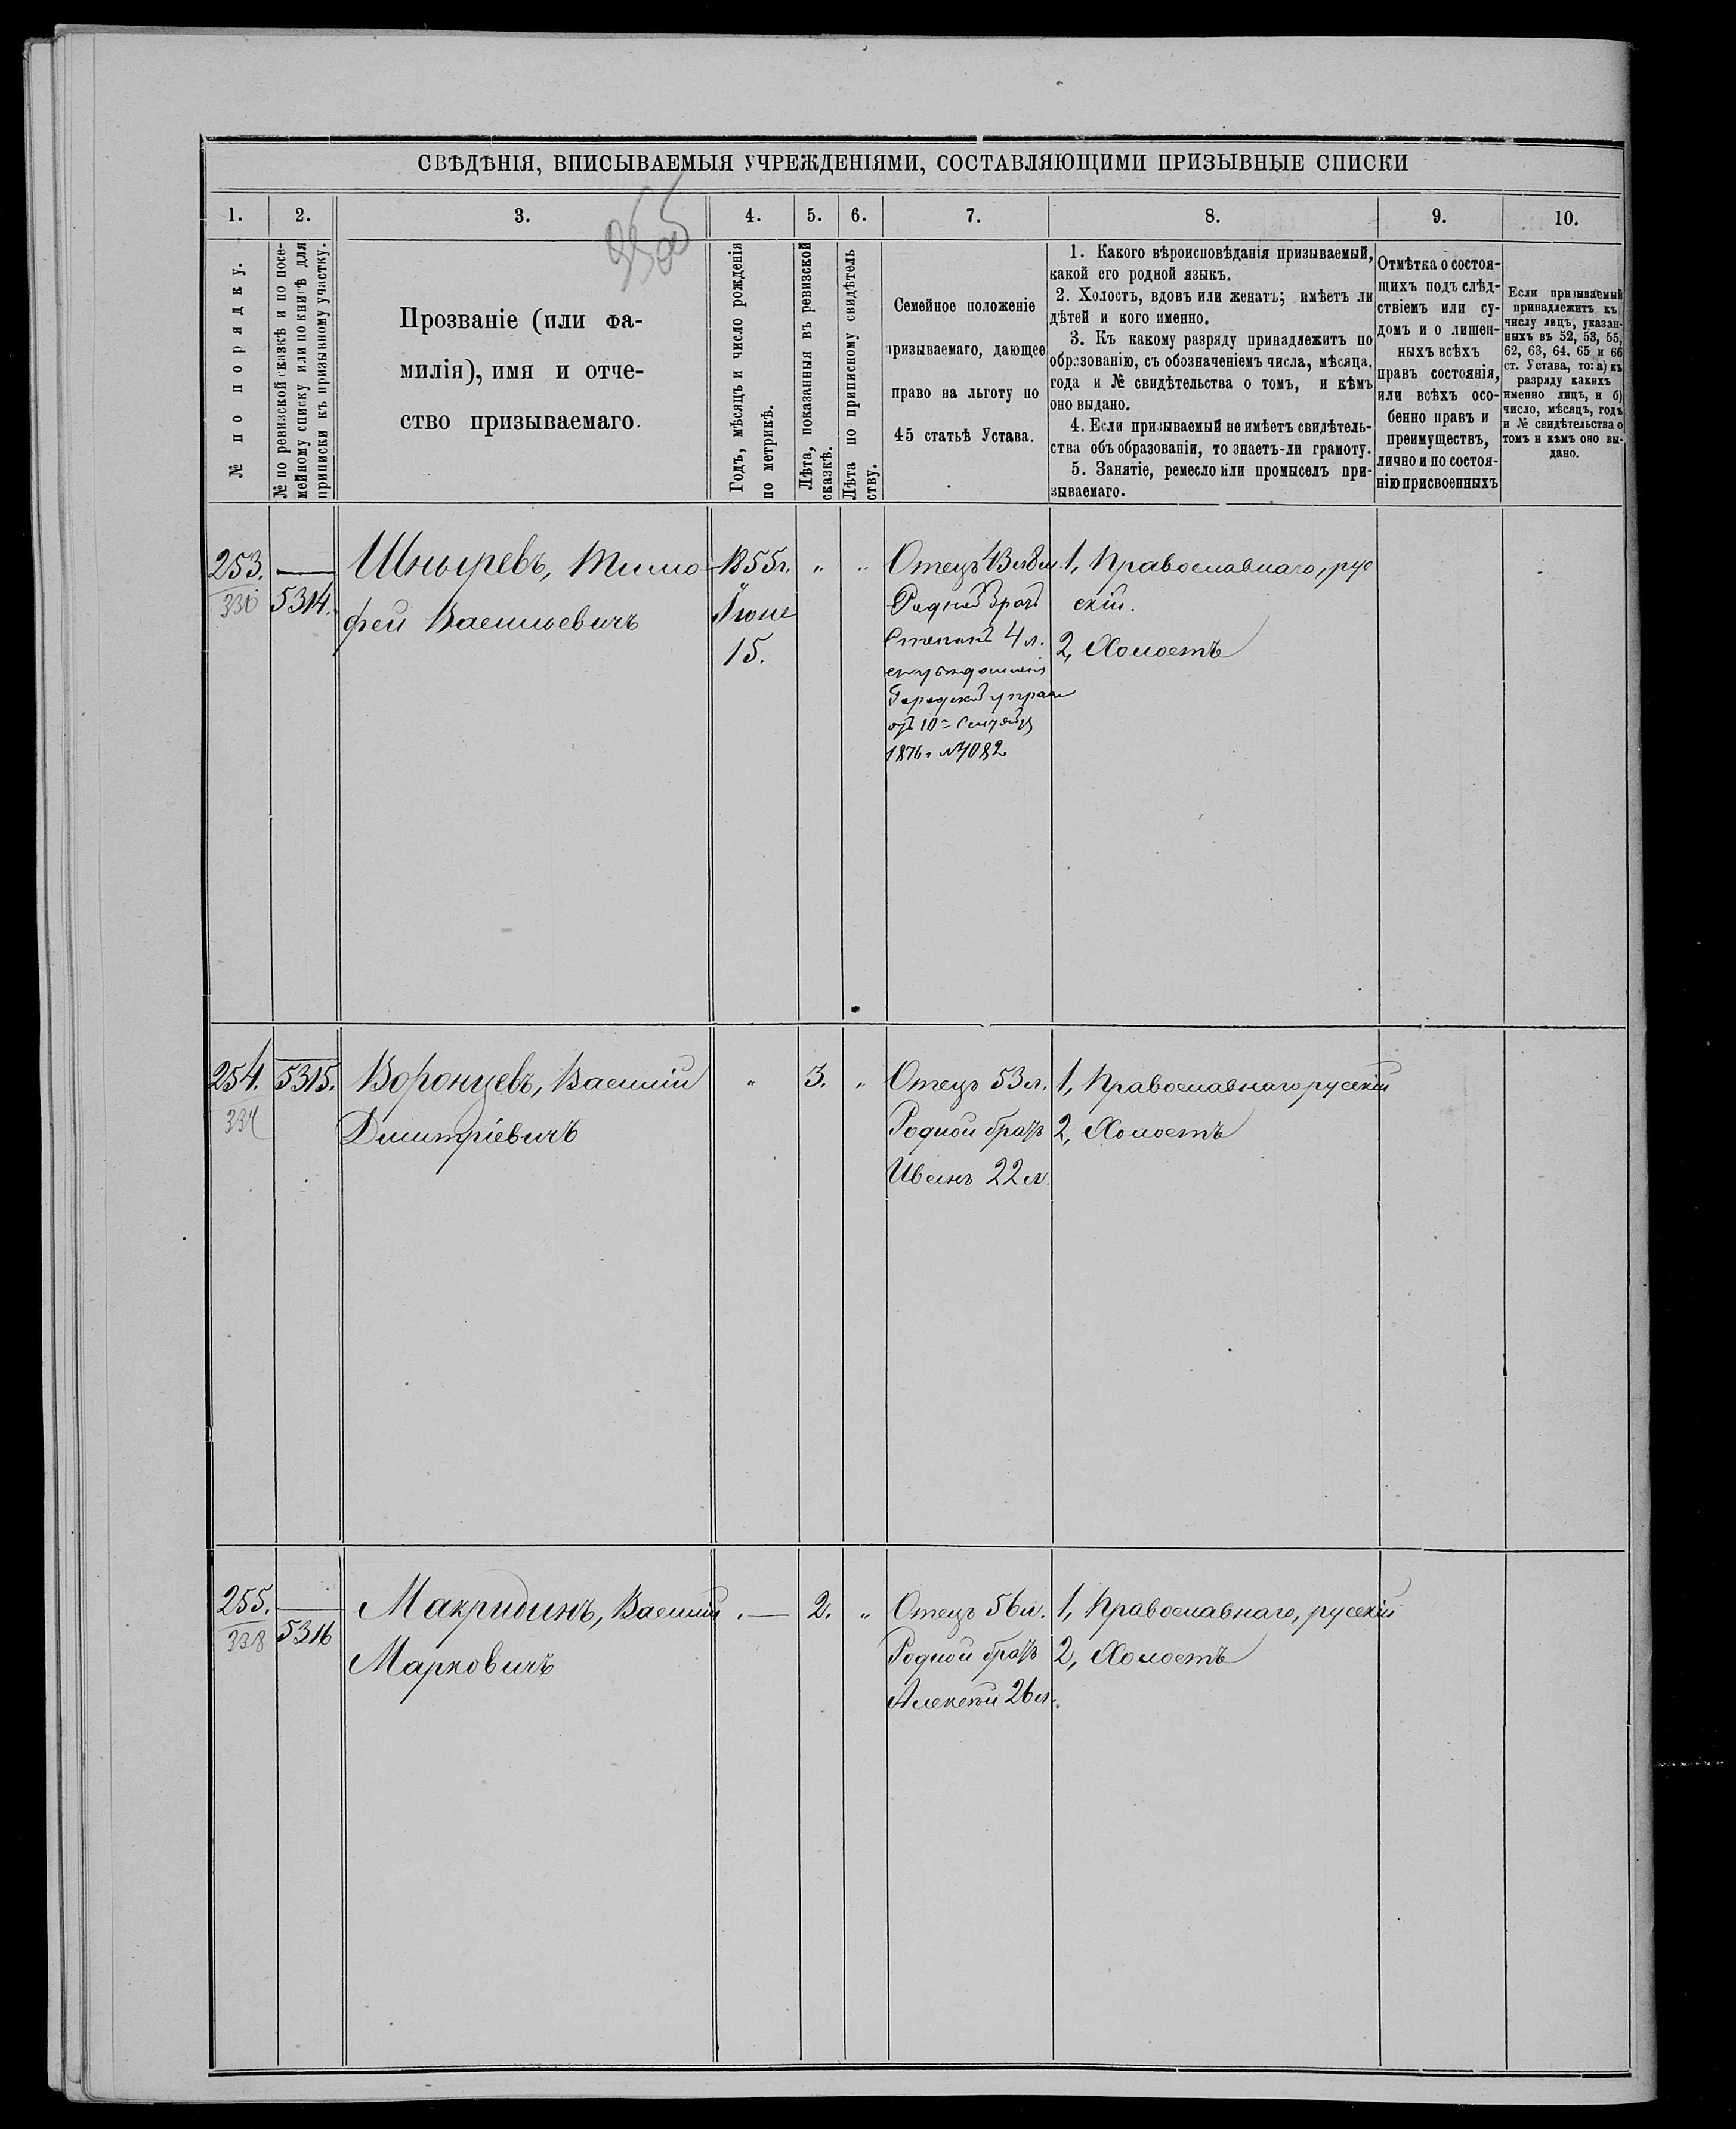 СВѢДѢНІЯ, ВПИСЫВАЕМЫЯ УЧРЕЖДЕНІЯМИ, СОСТАВЛЯЮЩИМИ ПРИЗЫВНЫЕ СПИСКИ
1. 2. 3. 4. 5. 6. 7. 8. 9. 10.
№ по порядку.
№ по ревизской сказкѣ и по посе-
мейному списку или по книгѣ для
приписки къ призывному участку.
Прозваніе (или фа-
милія), имя и отче-
ство призываемаго.
Годъ, мѣсяцъ и число рожденія
по метрикѣ.
Лѣта, показанныя въ ревизской
сказкѣ.
Лѣта по приписному свидѣтель
ству.
Семейное положеніе
призываемаго, дающее
право на льготу по
45 статьѣ Устава.
1. Какого вѣроисповѣданія призываемый,
какой его родной языкъ.
2. Холостъ, вдовъ или женатъ; имѣетъ ли
дѣтей и кого именно.
3. Къ какому разряду принадлежитъ по
образованію, съ обозначеніемъ числа, мѣсяца,
года и № свидѣтельства о томъ, и кѣмъ
оно выдано.
4. Если призываемый не имѣетъ свидѣтель-
ства объ образованіи, то знаетъ-ли грамоту.
5. Занятіе, ремесло или промыселъ при-
зываемаго.
Отмѣтка о состоя-
щихъ подъ слѣд-
ствіемъ или су-
домъ и о лишен-
ныхъ всѣхъ
правъ состоянія,
или всѣхъ осо-
бенно правъ и
преимуществъ,
лично и по состоя-
нію присвоенныхъ
Если призываемый
принадлежитъ къ
числу лицъ, указан-
ныхъ въ 52, 53, 55,
62, 63, 64, 65 и 66
ст. Устава, то: а) къ
разряду какихъ
именно лицъ, и б)
число, мѣсяцъ, годъ
и № свидѣтельства о
томъ и кѣмъ оно вы-
дано.
253.
5314.
Шныревъ, Тимо
фей Васильевичъ
1855 г.
Іюня
15.
" "
Отецъ 43 л 8 м
Родной братъ
Степанъ 4 л.
Городской управы
отъ 10го Сентября
1876 г №7082
1, Православнаго, рус
скій.
2, Холостъ
254.
334
5315.
Воронцевъ, Василій
Дмитріевичъ
" 3. "
Отецъ 53 л.
Родной братъ
Иванъ 22 л.
1, Православнаго русскій
2, Холостъ
255.
338
5316
Макридинъ, Василій
Марковичъ
— 2. "
Отецъ 56 л.
Родной братъ
Алексѣй 26 л.
1, Православнаго, русскій
2, Холостъ